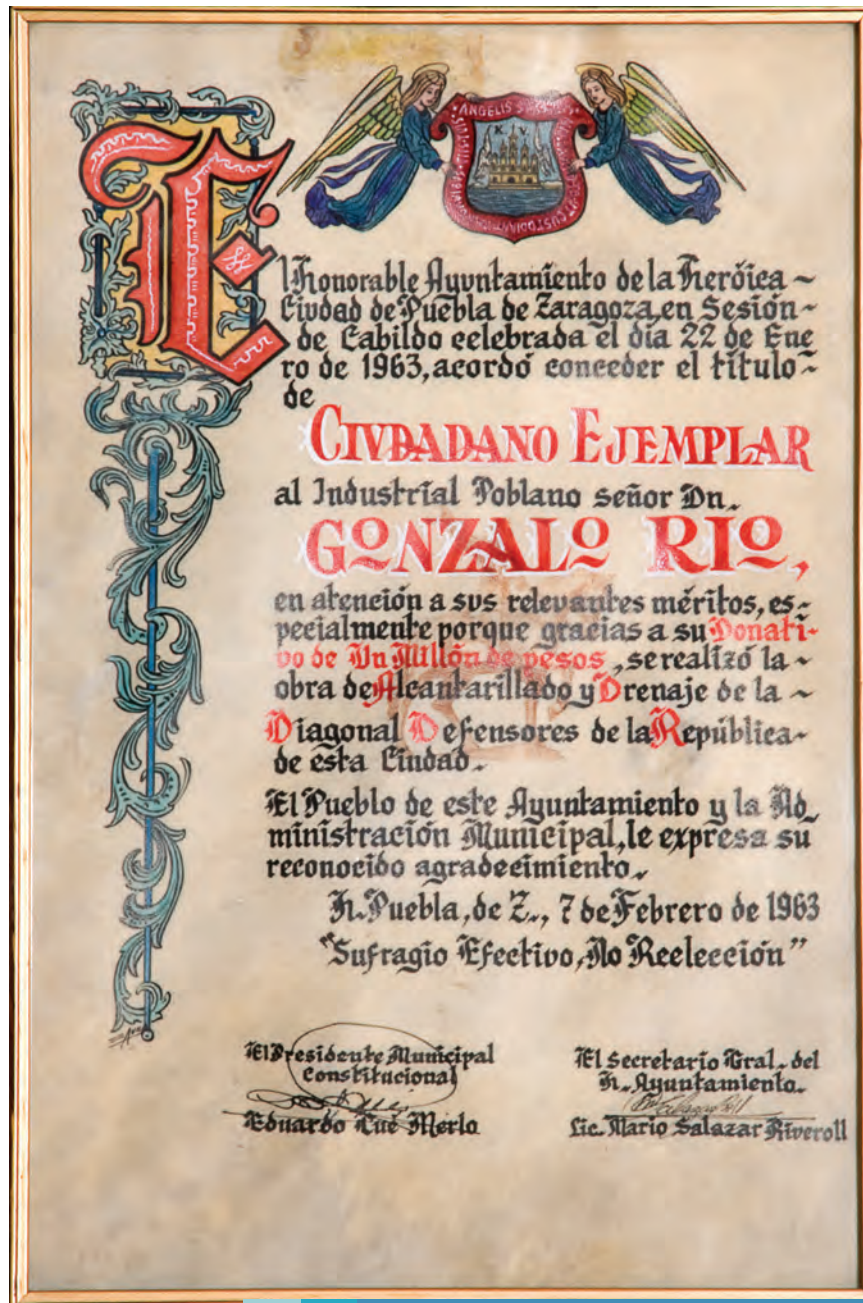 K. V.
El Honorable Ayuntamiento de la Heróica ~
Ciudad de Puebla de Zaragoza, en Sesión ~
de Cabildo celebrada el día 22 de Ene
ro de 1963, acordó conceder el título ~
de
CIVDADANO EJEMPLAR
al Industrial Poblano señor Dn.
GONZALO RIO,
en atención a sus relevantes méritos, es-
pecialmente porque gracias a su Donati-
vo de Un Millón de pesos, se realizó la ~
obra de Alcantarillado y Drenaje de la ~
Diagonal Defensores de la República ~
de ésta Ciudad.
El Pueblo de este Ayuntamiento y la Ad_
ministración Municipal, le expresa su
reconocido agradecimiento.
H. Puebla, de Z., 7 de Febrero de 1963
"Sufragio Efectivo, No Reelección"
El Presidente Municipal
Constitucional
Eduardo Cué Merlo
El Secretario Gral. del
H. Ayuntamiento.
Lic. Mario Salazar Riveroll